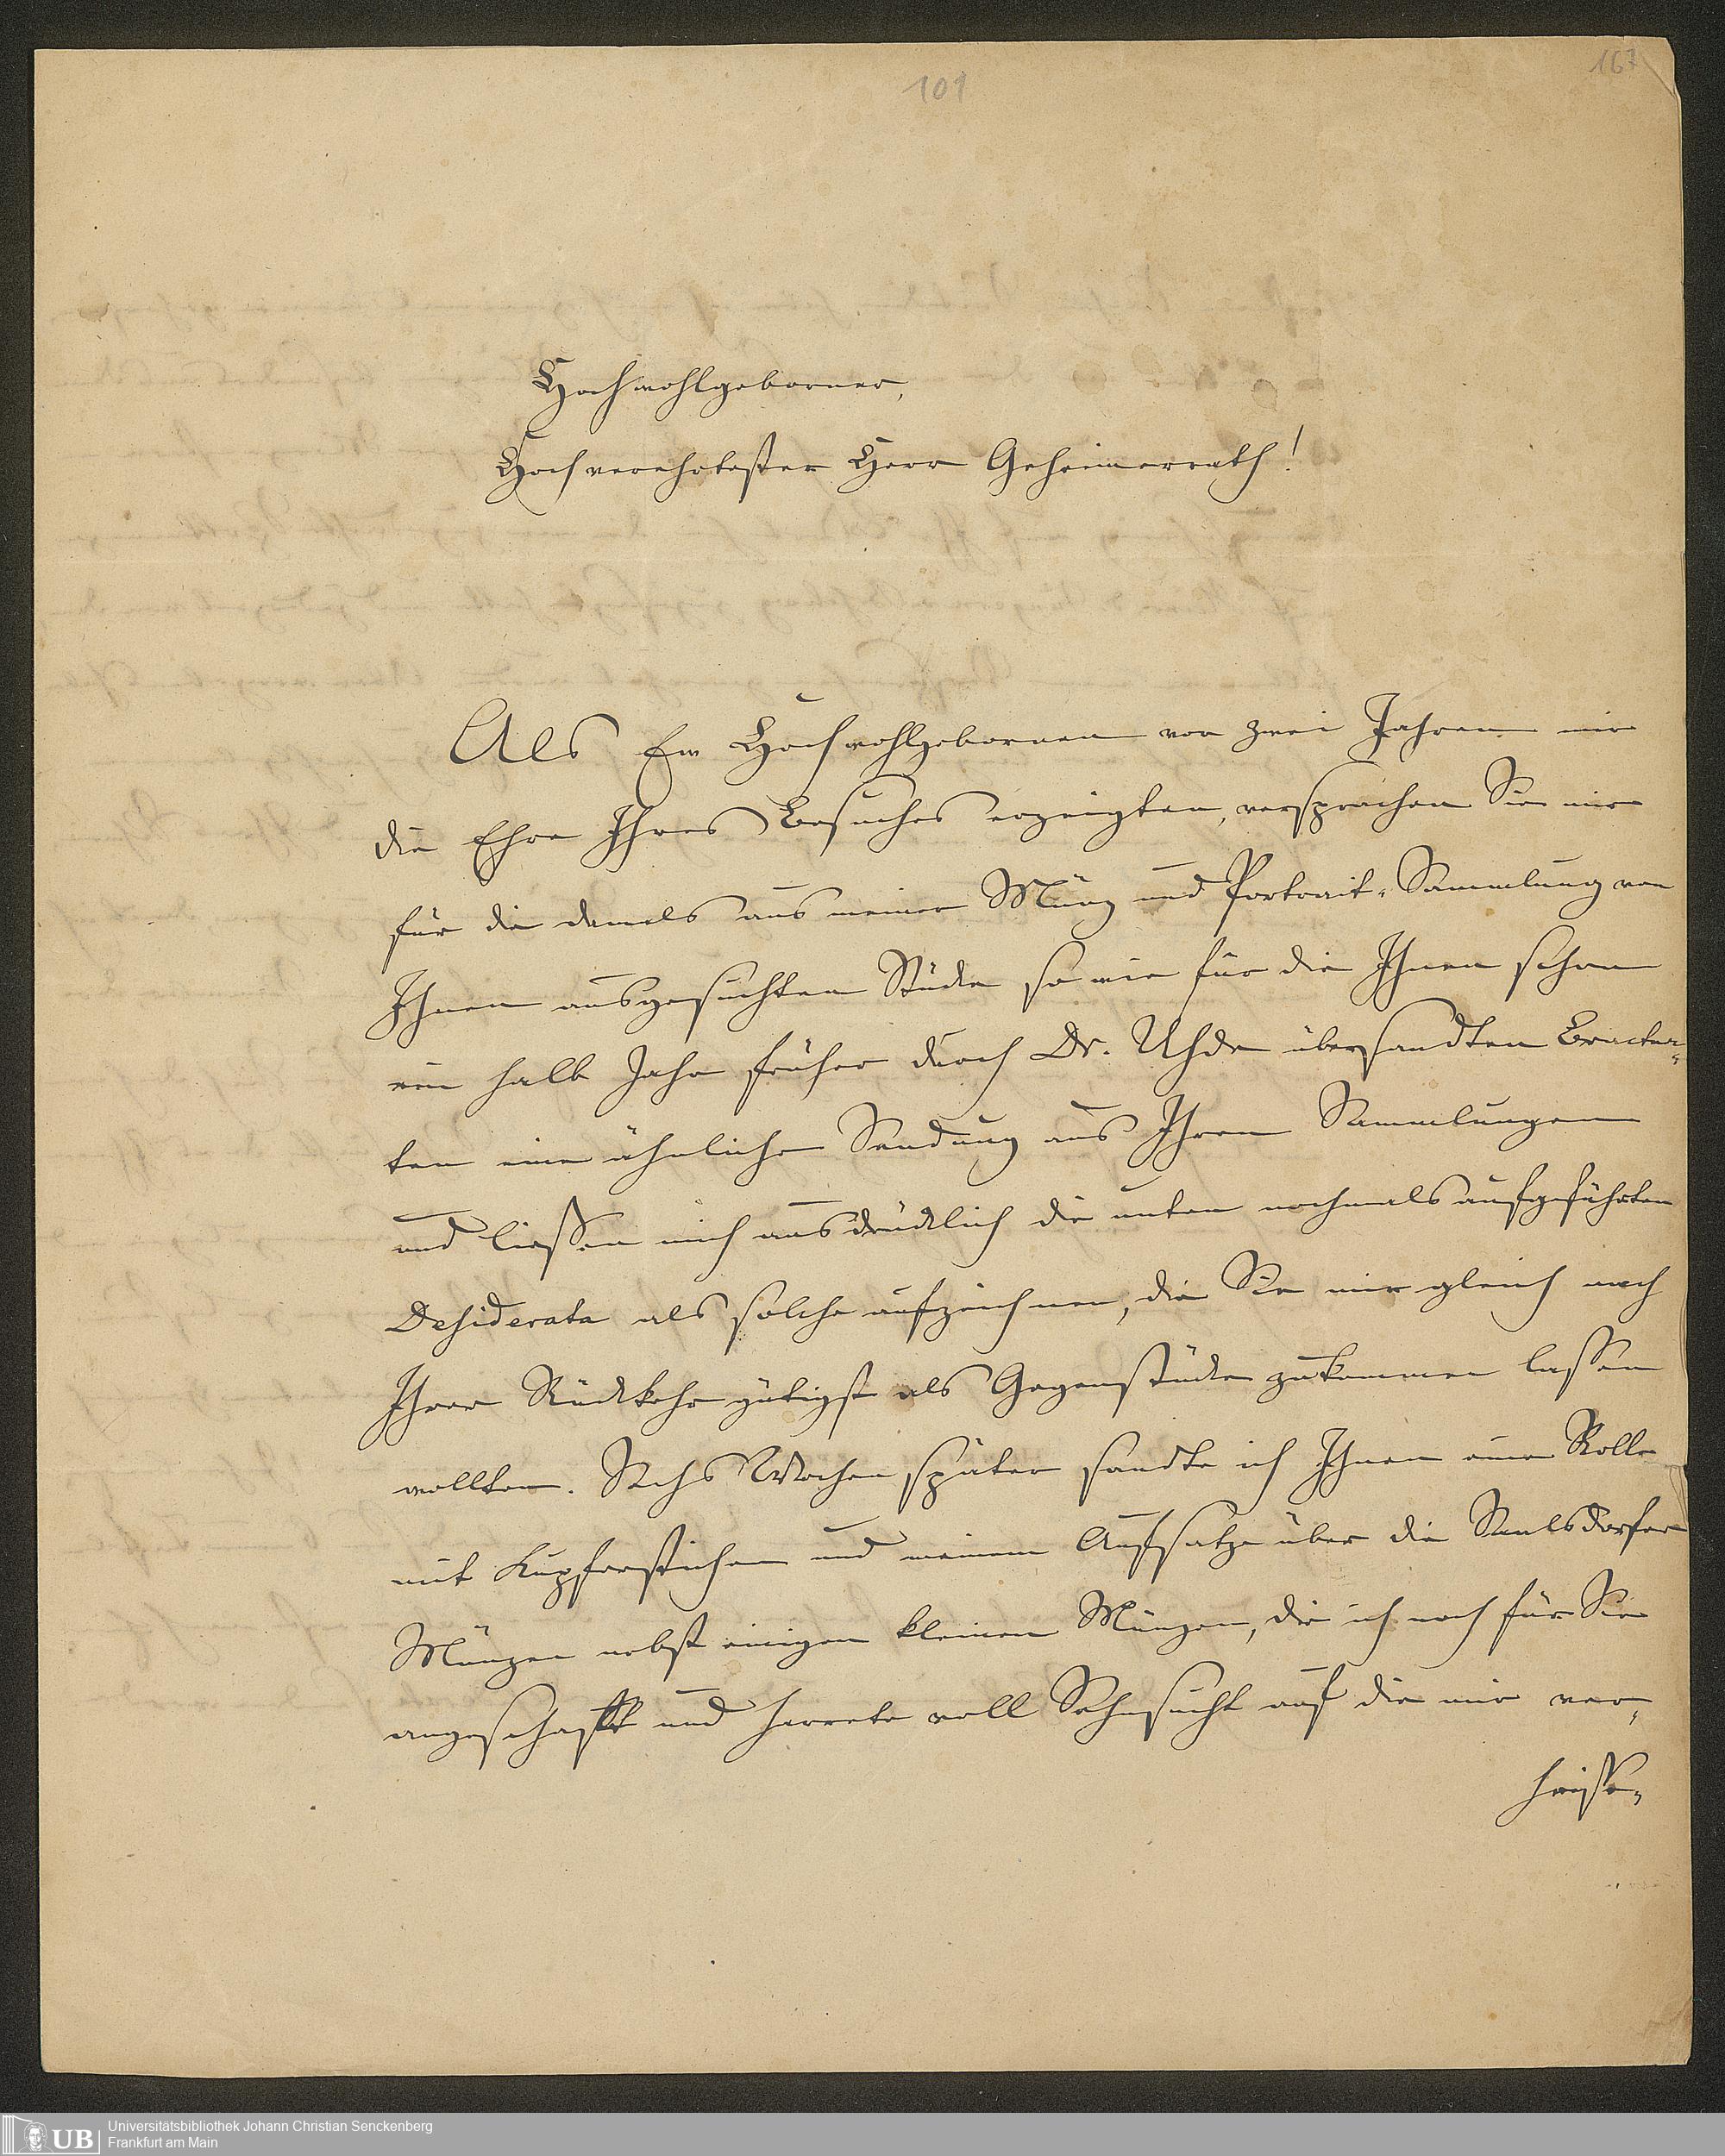 101
167
Hochwohlgeborner,
Hochverehrtester Herr Geheimerrath!
Als Ew Hochwohlgebornen vor zwei Jahren mir
die Ehre Ihres Besuches erzeigten, versprachen Sie mir
für die damals aus meiner Münz und Portrait-Sammlung von
Ihnen ausgesuchten Stücke so wie für die Ihnen schon
ein halb Jahr früher durch Dr. Uhde übersandten Bractea-
ten eine ähnliche Sendung aus Ihren Sammlungen
und liessen mich ausdrücklich die unten nochmals aufgeführten
Desiderata als solche aufzeichnen, die Sie mir gleich nach
Ihrer Rückkehr gütigst als Gegenstücke zukommen lassen
wollten. Sechs Wochen später sandte ich Ihnen eine Rolle
mit Kupferstichen und meinem Aufsatze über die Saulsdorfer
Münzen nebst einigen kleinen Münzen, die ich noch für Sie
angeschafft und harrete voll Sehnsucht auf die mir ver-
heisse-
UB
Universitätsbibliothek Johann Christian Senckenberg
Frankfurt am Main